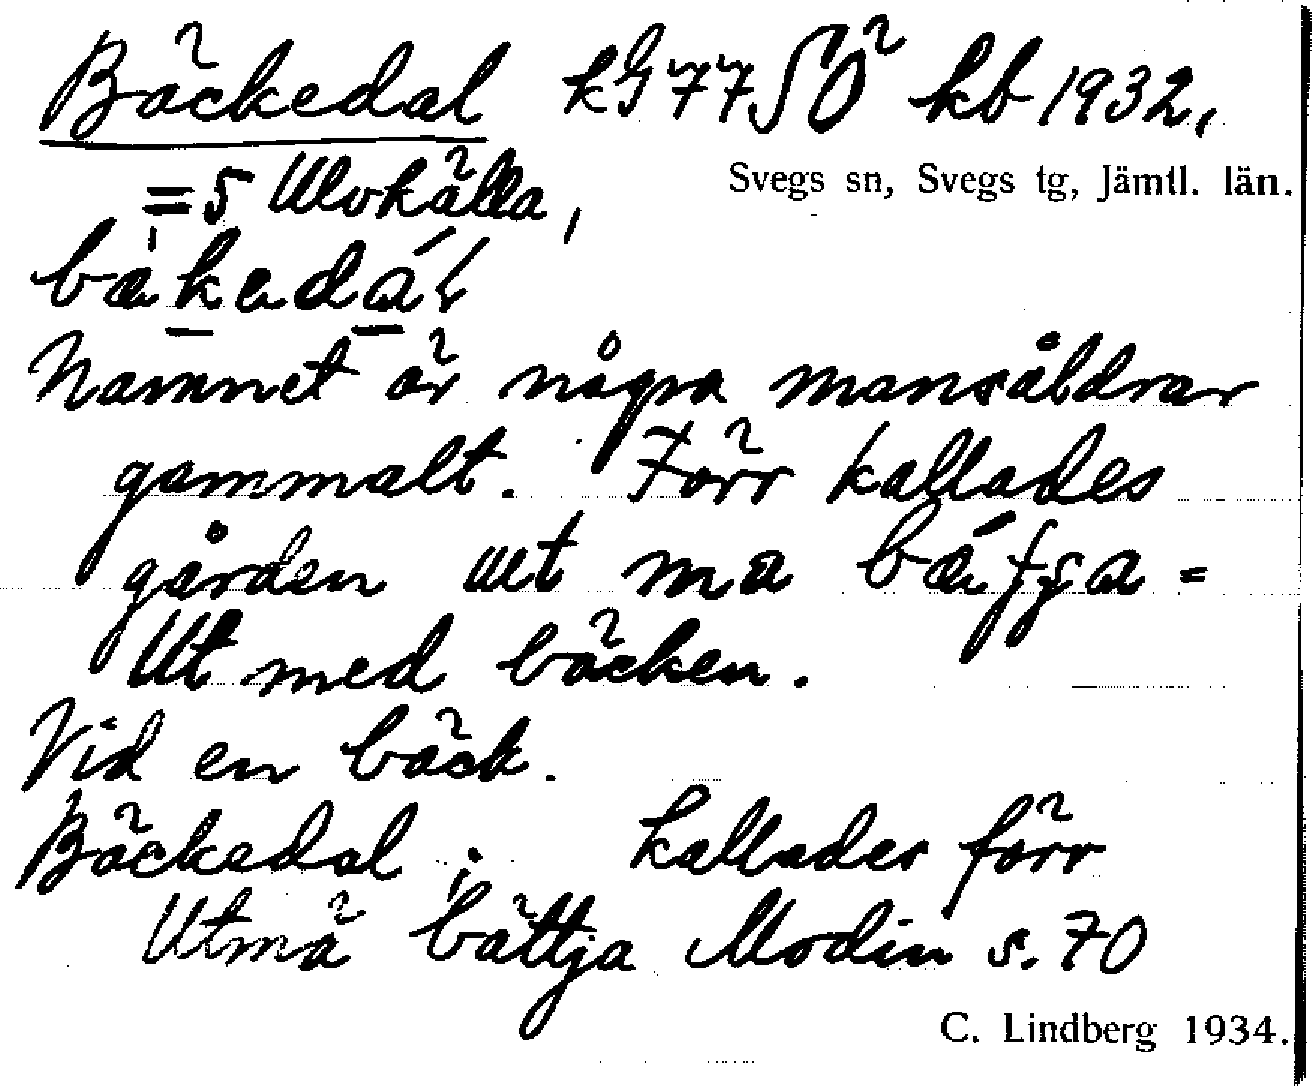 Bäckedal kG 77 SÖ kb 1932,
Svegs sn, Svegs tg, Jämtl. län.
= 5 Ulvkälla,
Namnet är några mansåldrar
gammalt. Förr kallades
gården ut ma
Ut med bäcken.
Vid en bäck.
Bäckedal; kallades förr
Utmä bättja Modin s. 70
C. Lindberg 1934.